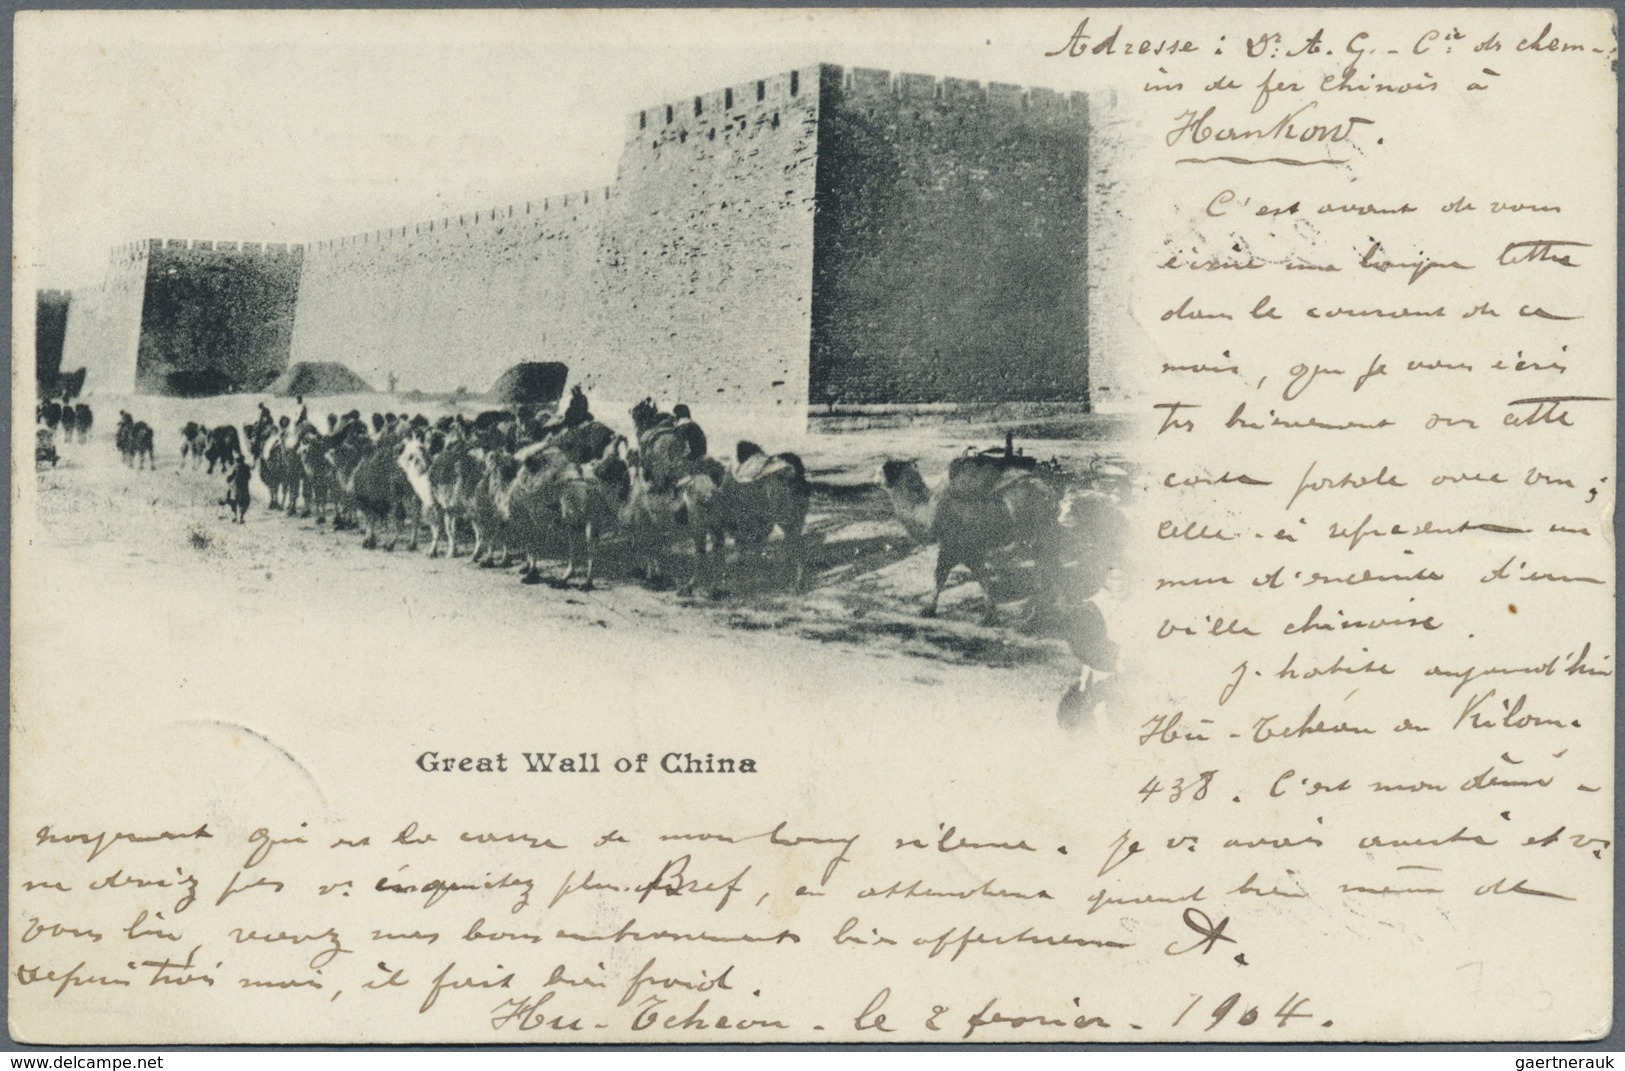 Adresse : Dr. A. G. - Cie de chem-
ins de fer chinois à
Hankow.
C'est avant de vous
écrire une longue lettre
dans le courant de ce
mois, que je vous écris
très brièvement sur cette
carte postale avec vue ;
celle-ci représente un
mur d'enceinte d'une
ville chinoise.
J'habite aujourd'hui
Hu-Tcheou au Kilom.
438. C'est mon démé-
Great Wall of China
nagement qui est la cause de mon long silence. Je vs avais averti et vs
ne deviez pas vs inquiétez plus. Bref, en attendant quand bien même de
vous lire, recevez mes bons embrassements bien affectueux A.
Depuis trois mois, il fait bien froid.
Hu-Tcheou - le 2 février - 1904.
delcampe.net
gaertnerauk